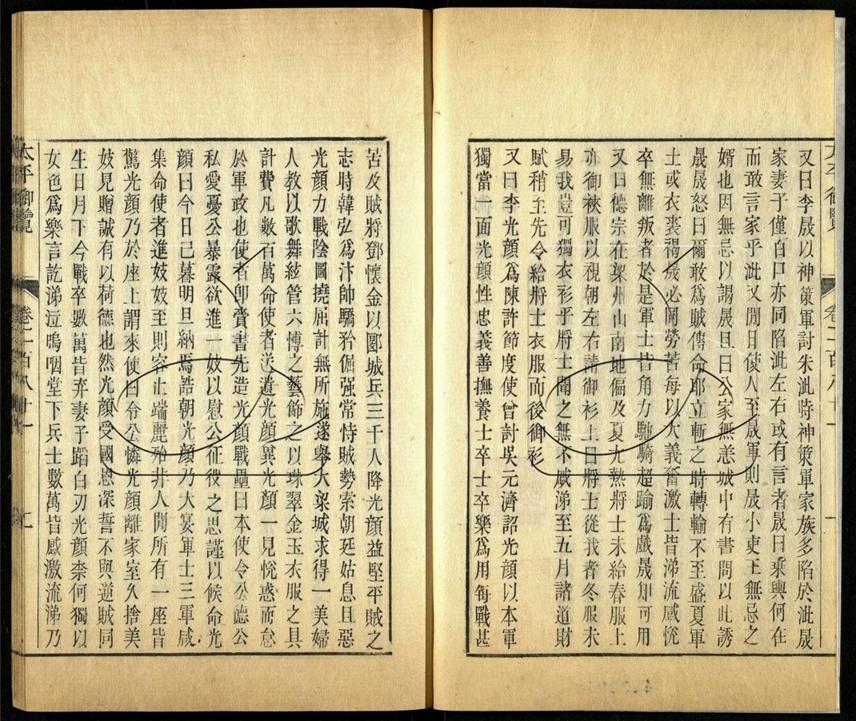 又曰李晟以神策軍討朱泚時神策軍家族多陷於泚晟
家妻子僅百口亦同陷泚左右或有言者晟曰乘輿何在
而敢言家乎泚又間日使人至晟軍則晟小吏王無忌之
婿也因無忌以謁晟且曰公家無恙城中有書問以此誘
晟晟怒曰爾敢為賊傳命耶立斬之時轉輸不至盛夏軍
士或衣裘褐晟必同勞苦每以大義奮激士皆涕流感悅
卒無離叛者於是軍士皆角力馳騎超踰為戲晟知可用
又曰德宗在梁州山南地偏及夏尤熱將士未給春服上
亦御裌服以視朝左右請御衫上曰將士從我者冬服未
易我豈可獨衣衫乎將士聞之無不感涕至五月諸道財
賦稍至先令給將士衣服而後御衫
又曰李光顏為陳許節度使曾討吳元濟詔光顏以本軍
獨當一面光顏性忠義善撫養士卒士卒樂為用每戰甚
苦及賊將鄧懷金以郾城兵三千人降光顏益堅平賊之
志時韓弘為汴帥驕矜倔强常恃賊勢索朝廷姑息且惡
光顏力戰陰圖撓屈計無所施遂舉大梁城求得一美婦
人教以歌舞絃管六博之藝飾之以珠翠金玉衣服之具
計費凡數百萬命使者送遺光顏冀光顏一見悅惑而怠
於軍政也使者卽賫書先造光顏戰壘曰本使令公德公
私愛憂公暴露欲進一妓以慰公征役之思謹以候命光
顏曰今日已暮明旦納焉詰朝光顏乃大宴軍士三軍咸
集命使者進妓妓至則容止端麗殆非人間所有一座皆
驚光顏乃於座上謂來使曰令公憐光顏離家室久捨美
妓見贈誠有以荷德也然光顏受國恩深誓不與逆賊同
生日月下今戰卒數萬皆弃妻子蹈白刃光顏柰何獨以
女色為樂言訖涕泣嗚咽堂下兵士數萬皆感激流涕乃
太平御覽 卷二百八十一